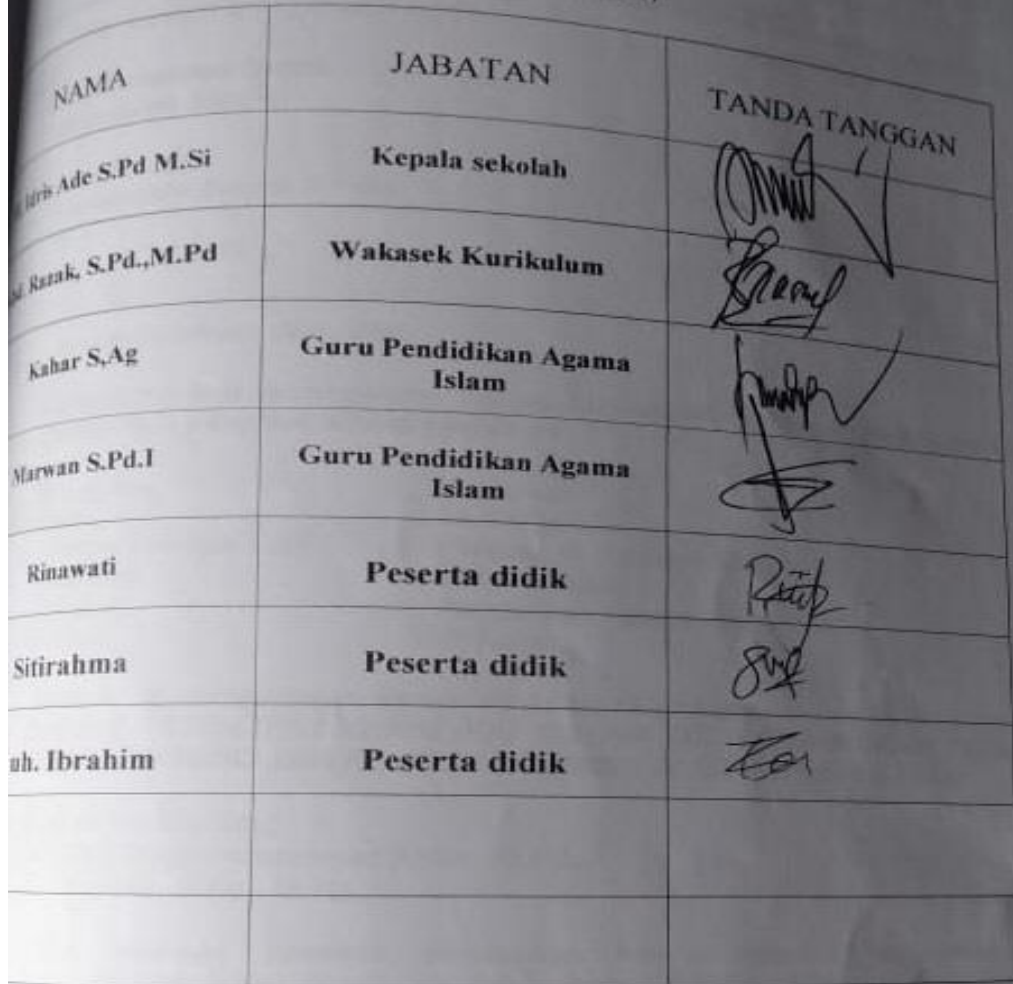 NAMA JABATAN TANDA TANGGAN
Idris Ade S.Pd M.Si Kepala sekolah
Razak, S.Pd.,M.Pd Wakasek Kurikulum
Kahar S,Ag Guru Pendidikan Agama
Islam
Marwan S.Pd.I Guru Pendidikan Agama
Islam
Rinawati Peserta didik
Sitirahma Peserta didik
uh. Ibrahim Peserta didik